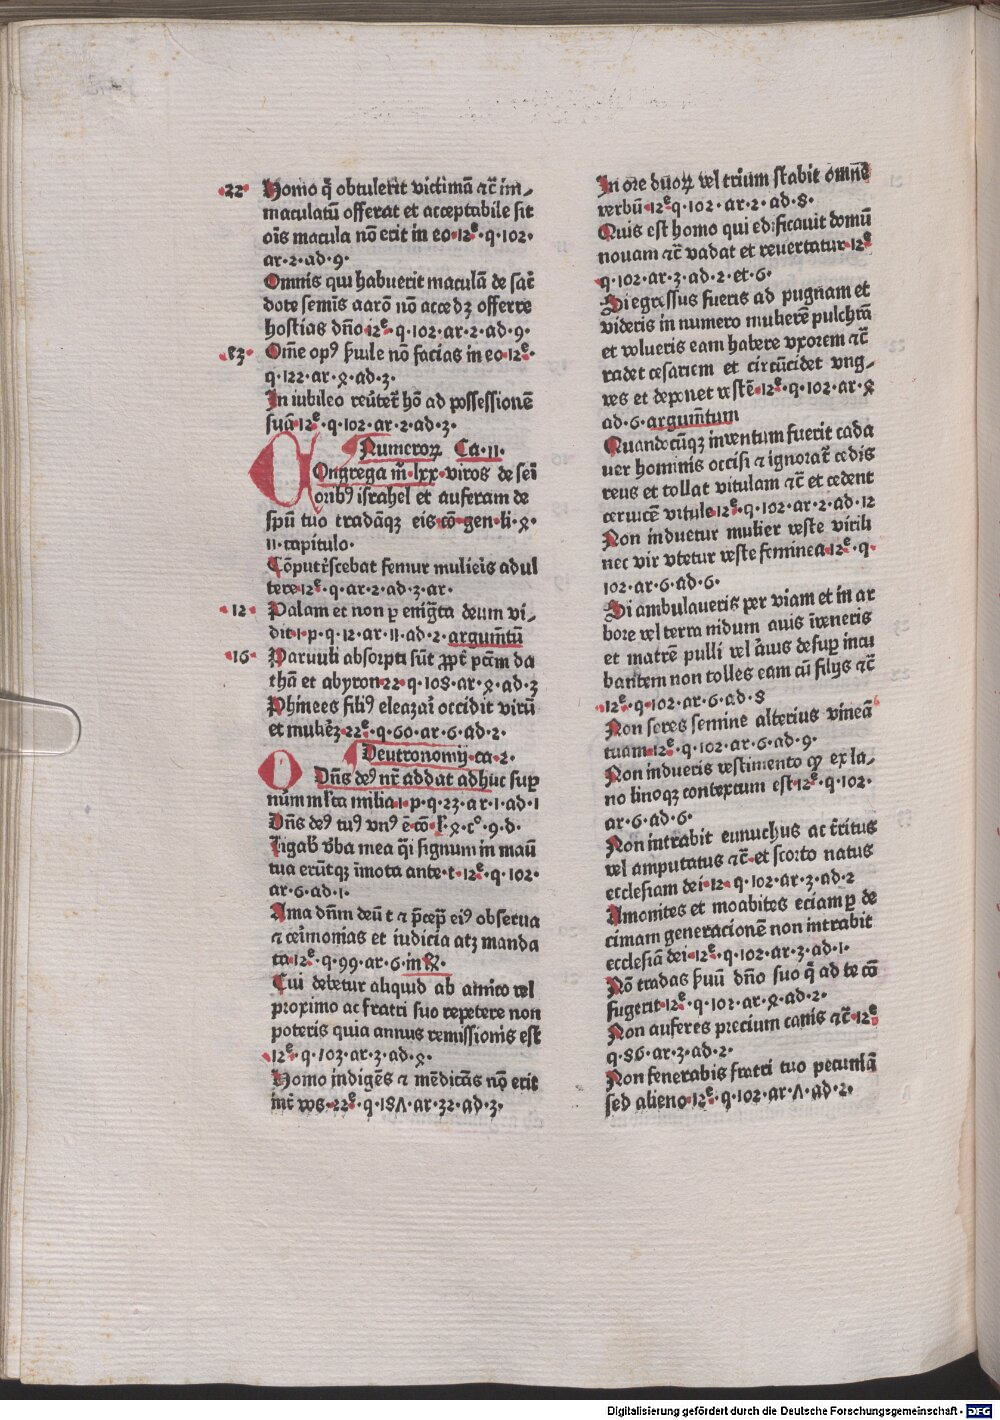 ·22· Homo q̄ obtulerit victimā ⁊c̄ im⸗
maculatū offerat et acceptabile sit
oīs macula nō erit in eo·12ᵉ·q·102·
ar·2·ad·9·
Omnis qui habuerit maculā de sac̄
dote semīs aarō nō accedꝫ offerre
hostias dño·12ᵉ·q·102·ar·2·ad·9·
·23· Om̄e opꝰ ẜuile nō facias in eo·12ᵉ·
q·122·ar·ꝝ·ad·3·
In iubileo reūtet̄ hō ad possessionē
suā·12ᵉ·q·102·ar·2·ad·3·
Numeroꝝ Ca·11·
Congrega m̄·lxx·viros de sei
oribꝰ israhel et auferam de
spū tuo tradāqꝫ eis·cō·gen·li·ꝝ·
11·capitulo·
Cōputr̄scebat femur mulieis adul
tere·12ᵉ·q·ar·2·ad·3·ar·
·12· Palam et non ꝑ enig̃ta deum vi⸗
dit·1·p·q·12·ar·11·ad·2·argum̄tū
·16· Paruuli absorpti sūt ꝓpt̄ pctm̄ da
thā et abyron·22·q·108·ar·ꝝ·ad·3
Phinees filiꝰ eleazaī occidit virū
et muliēꝫ·22ᵉ·q·60·ar·6·ad·2·
Deutronomij·ca·2·
Dn̄s deꝰ nr̄ addat adhuc suꝑ
nūm ml̄ta milia·1·p·q·23·ar·1·ad·1
Dn̄s deꝰ tuꝰ vnꝰ ē·cō·l̄·ꝝ·cº·9·d·
Ligab̄ v̄ba mea q̄i signum in manū
tua erūtqꝫ īmota ante·t·12ᵉ·q·102·
ar·6·ad·1·
Ama dn̄m deū t ⁊ p̄cep̄ eiꝰ obserua
⁊ cēimonias et iudicia atꝫ manda
ta·12ᵉ·q·99·ar·6·in
Cui debetur aliquid ab amico vel
proximo ac fratri suo repetere non
poteris quia annus remissionis est
·12ᵉ·q·103·ar·3·ad·ꝝ·
Homo indigēs ⁊ mēdicās nō erit
int̄ vos·22ᵉ·q·18Λ·ar·32·ad·3·
In ore duoꝝ vel trium stabit omnē
verbū·12ᵉq·102·ar·2·ad·8·
Quis est homo qui edificauit domū
nouam ⁊c̄ vadat et reuertatur·12ᵉ
q·102·ar·3·ad·2·et·6·
Si egressus fueris ad pugnam et
videris in numero mulierē pulchrā
et volueris eam habere vxorem ⁊c̄
radet cesariem et circūcidet vng⸗
ves et deponet vestē·12ᵉ·q·102·ar·ꝝ
ad·6·argum̄tum
Quandocūqꝫ inventum fuerit cada
uer hominis occisi ⁊ ignorat̄ cedis
reus et tollat vitulam ⁊c̄ et cedent
ceruicē vitule·12ᵉ·q·102·ar·2·ad·12
Non induetur mulier veste virili
nec vir vtetur veste feminea·12ᵉ·q·
102·ar·6·ad·6·
Si ambulaueris per viam et in ar
bore vel terra nidum auis īveneris
et matrē pulli vel āuis desuꝑ incu
bantem non tolles eam cū filijs ⁊c̄
·12ᵉ·q·102·ar·6·ad·8
Non seres semine alterius vineā
tuam·12ᵉ·q·102·ar·6·ad·9·
Non indueris vestimento ꝙ ex la⸗
no linoqꝫ contextum est·12ᵉ·q·102·
ar·6·ad·6·
Non intrabit eunuchus ac t̄ritus
vel amputatus ⁊c̄·et scorto natus
ecclesiam dei·12·q·102·ar·3·ad·2
Amonites et moabites eciam ꝑ de
cimam generacionē non intrabit
ecclesiā dei·12ᵉ·q·102·ar·3·ad·1·
Nō tradas ẜuū dño suo q̄ ad te cō
fugerit·12ᵉ·q·102·ar·ꝝ·ad·2·
Non auferes precium canis ⁊c̄·12ᵉ
q·86·ar·3·ad·2·
Non fenerabis fratri tuo pecuniā
sed alieno·12ᵉ·q·102·ar·Λ·ad·2·
Digitalisierung gefördert durch die Deutsche Forschungsgemeinschaft - DFG